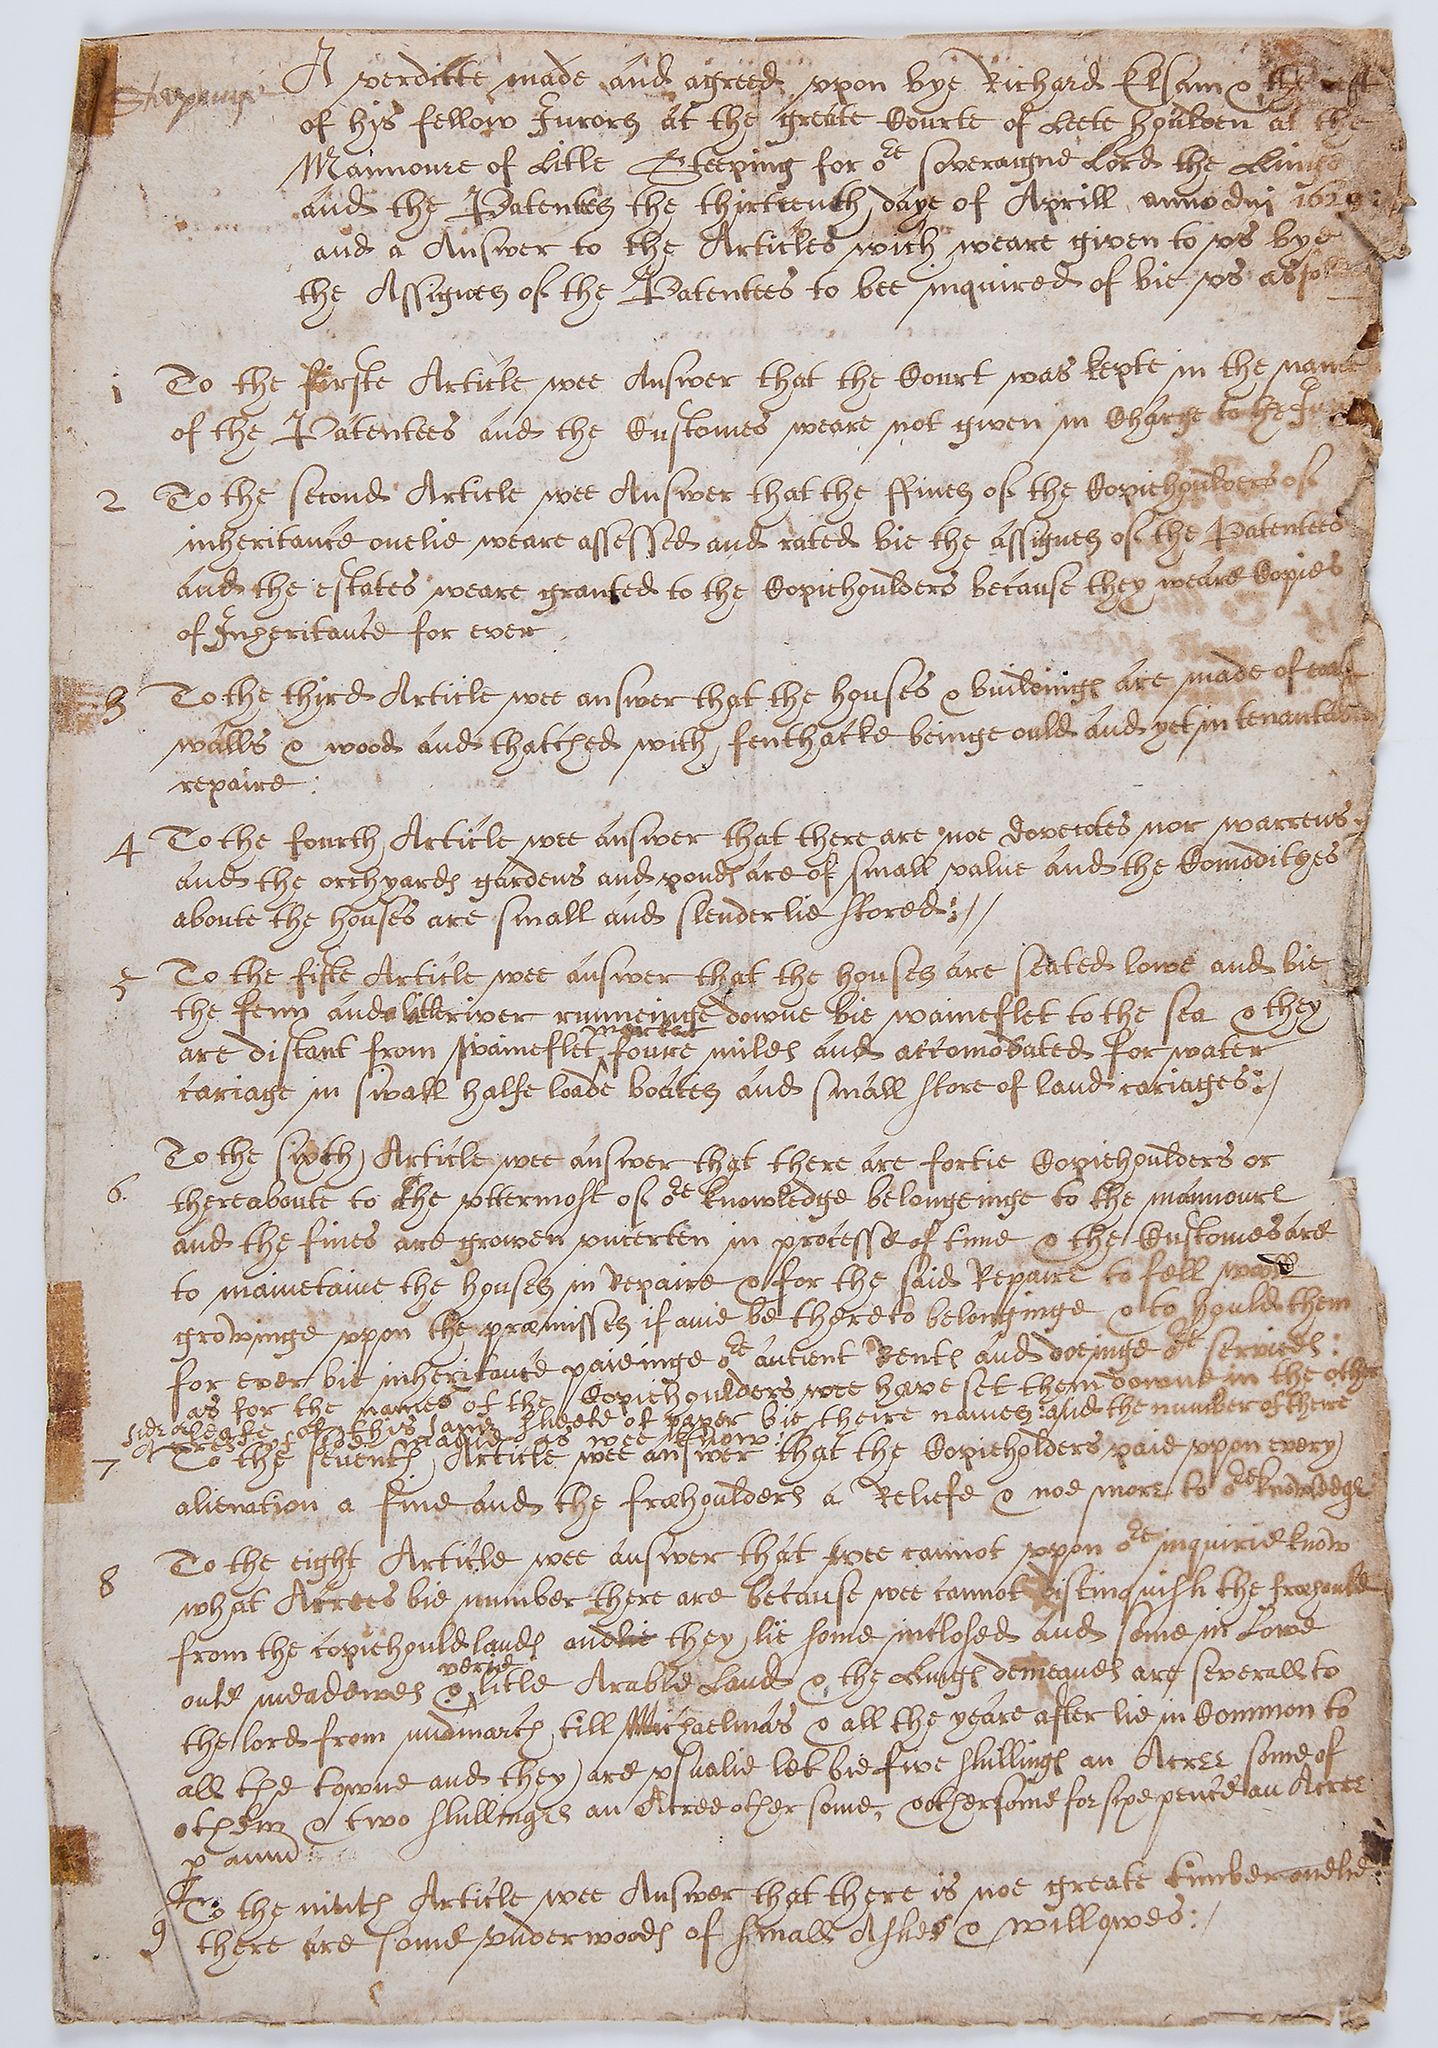 A verditte made and agreed upon bye Richard Elsam &
of his fellow Jurors at the greate Courte of Leete houlden at the
Mannoure of Litle Steeping for or soveraigne Lord the Kinge
and the Patentees the thirteenth daye of Aprill anno dni
and a Answer to the Articles wich weare given to vs bye
the Assignes of the Patentees to bee inquired of bie vs
1 To the firste Article wee Answer that the Court was kepte in the name
of the Patentees and the Customes weare not given in Charge to the
2 To the second Article wee Answer that the ffines of the Copiehoulders of
inheritance onelie weare assessed and rated bie the assignes of the Patentees
and the estates weare granted to the Copiehoulders because they weare Copies
of Inheritance for ever
3 To the third Article wee answer that the houses & buildings are made of
walls & wood and thatched with fenthacke beinge ould and yet in tenantable
repaire:
4 To the fourth Article wee answer that there are noe dovecotes nor warrens
and the orchyards gardens and ponds are of small value and the Comodityes
aboute the houses are small and slenderlie stored://
5 To the fifte Article wee answer that the houses are seated lowe and bie
the fenn and litle river runneinge downe bie waineflet to the sea & they
are distant from wainflet ^market foure miles and accomodated for water
cariage in small halfe loade boates and small store of land cariages:/
6. To the sixth Article wee answer that there are fortie Copiehoulders or
thereaboute to the vttermost of or knowledge belongeinge to the mannoure
and the fines are growen vncerten in processe of time & the Customes are
to mainetaine the houses in Repaire & for the said Repaire to fell wood
growinge vpon the præmisses if anie be thereto belonginge & to hould them
for ever bie inheritance paieinge or antient Rents and doeinge or services:
as for the names of the Copiehoulders wee have set them downe in the other
side leafe of this sheete of paper bie theire names and the number of theire
Acres as wee know:
7 To the seventh Article wee answer that the Copieholders paie vpon every
alienation a fine and the freehoulders a Reliefe & noe more to or knowledge
8 To the eight Article wee answer that wee cannot vpon or inquirie know
what Acrees bie number there are because wee cannot distinguish the freehould
from the copiehould lands and they lie some inclosed and some in Lowe
ould meadowes & ^verie litle Arable Land & the Kings demeanes are severall to
the lord from midmarch till Michaelmas & all the yeare after lie in Common to
all the towne and they are vsualie let bie five shillings an Acree some of
them & two shillinges an Acree other some, & other some for sixe pence an Acree
p annu
9 To the ninth Article wee Answer that there is noe greate timber onelie
there are some vnderwoods of small Ashes & willowes:/